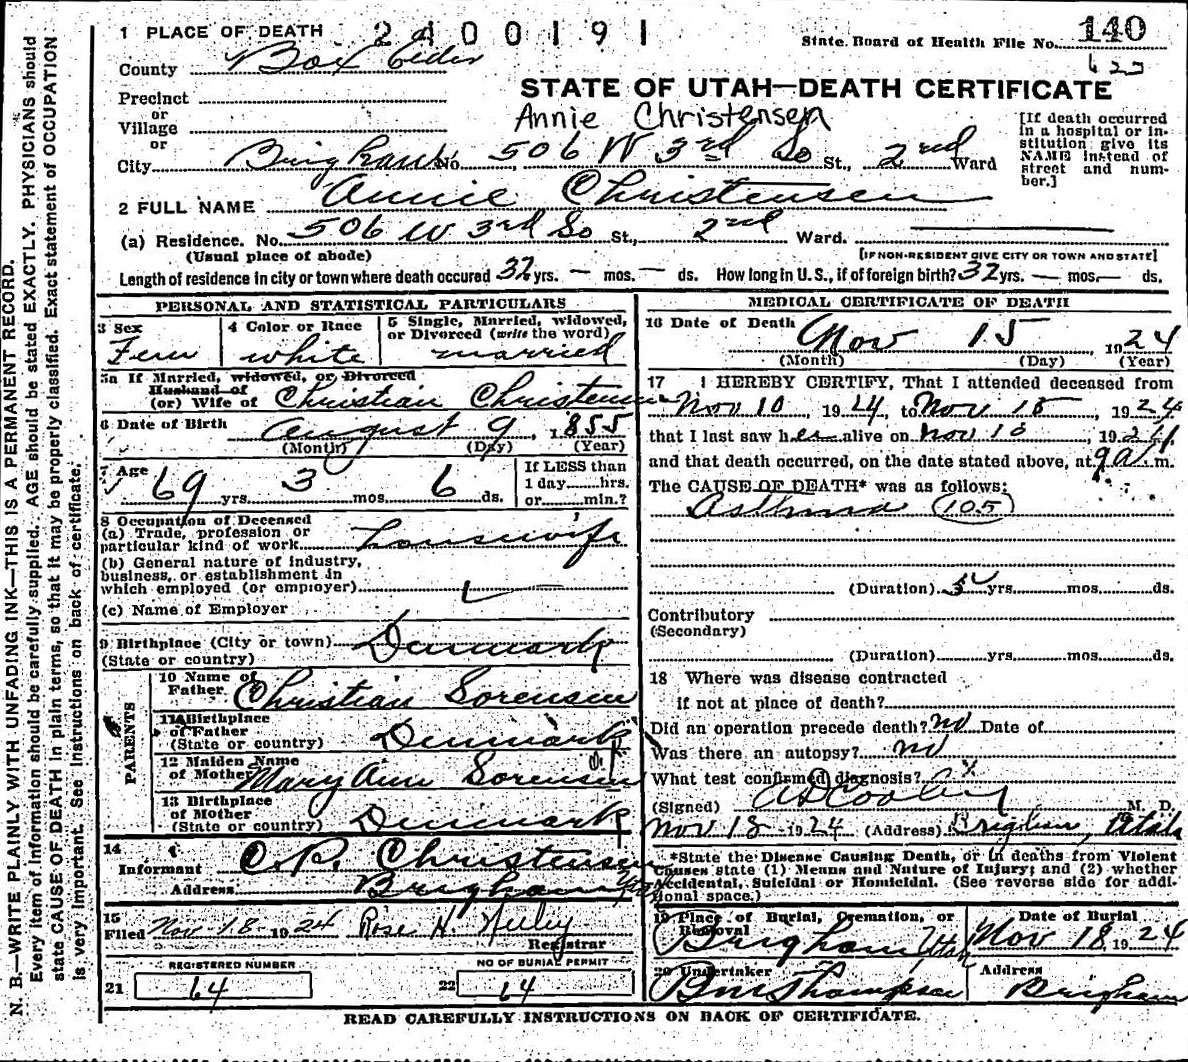 1 PLACE OF DEATH 2400191
State Board of Health File No. 140
County Box Elder
622
STATE OF UTAH—DEATH CERTIFICATE
Precinct
or
Village
or
Annie Christensen
[If death occurred in a hospital or institution give its NAME instead of street and number.]
City Brigham No. 506 W 3rd So St., 2nd Ward
2 FULL NAME Annie Christensen
(a) Residence. No. 506 W 3rd So St., 2nd Ward.
(Usual place of abode) [IF NON-RESIDENT GIVE CITY OR TOWN AND STATE]
Length of residence in city or town where death occured 32 yrs. — mos. — ds. How long in U. S., if of foreign birth? 32 yrs. — mos. — ds.
PERSONAL AND STATISTICAL PARTICULARS
3 Sex
Fem
4 Color or Race
white
5 Single, Married, widowed, or Divorced (write the word)
married
5a If Married, widowed, or Divorced
Husband of
(or) Wife of Christian Christensen
6 Date of Birth August 9, 1855
(Month) (Day) (Year)
7 Age
69 yrs. 3 mos. 6 ds.
If LESS than
1 day hrs.
or min.?
8 Occupation of Deceased
(a) Trade, profession or
particular kind of work housewife
(b) General nature of industry,
business, or establishment in
which employed (or employer)
(c) Name of Employer
9 Birthplace (City or town) Denmark
(State or country)
PARENTS
10 Name of
Father Christian Sorensen
11 Birthplace
of Father
(State or country) Denmark
12 Maiden Name
of Mother Mary Ann Sorensen
13 Birthplace
of Mother
(State or country) Denmark
14
Informant C. P. Christensen
Address Brigham
15
Filed Nov 18 1924 Rose H. Neeley
Registrar
REGISTERED NUMBER
21 64
NO OF BURIAL PERMIT
22 64
MEDICAL CERTIFICATE OF DEATH
16 Date of Death Nov 15, 1924
(Month) (Day) (Year)
17 I HEREBY CERTIFY, That I attended deceased from
Nov 10, 1924, to Nov 15, 1924
that I last saw her alive on Nov 10, 1924,
and that death occurred, on the date stated above, at 9 a. m.
The CAUSE OF DEATH* was as follows:
Asthma (105)
(Duration) yrs. mos. ds.
Contributory
(Secondary)
(Duration) yrs. mos. ds.
18 Where was disease contracted
if not at place of death?
Did an operation precede death? no Date of
Was there an autopsy? no
What test confirmed diagnosis?
(Signed) A D Cooley M. D.
Nov 18 1924 (Address) Brigham, Utah
*State the Disease Causing Death, or in deaths from Violent
Causes state (1) Means and Nature of Injury; and (2) whether
Accidental, Suicidal or Homicidal. (See reverse side for additional space.)
19 Place of Burial, Cremation, or
Removal
Brigham Utah
Date of Burial
Nov 18 1924
20 Undertaker
Thompson
Address
Brigham
READ CAREFULLY INSTRUCTIONS ON BACK OF CERTIFICATE.
N. B.—WRITE PLAINLY WITH UNFADING INK—THIS IS A PERMANENT RECORD.
Every item of information should be carefully supplied. AGE should be stated EXACTLY. PHYSICIANS should
state CAUSE OF DEATH in plain terms, so that it may be properly classified. Exact statement of OCCUPATION
is very important. See instructions on back of certificate.